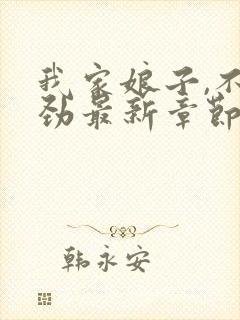 我家娘子,不
劲最新章节
韩永安